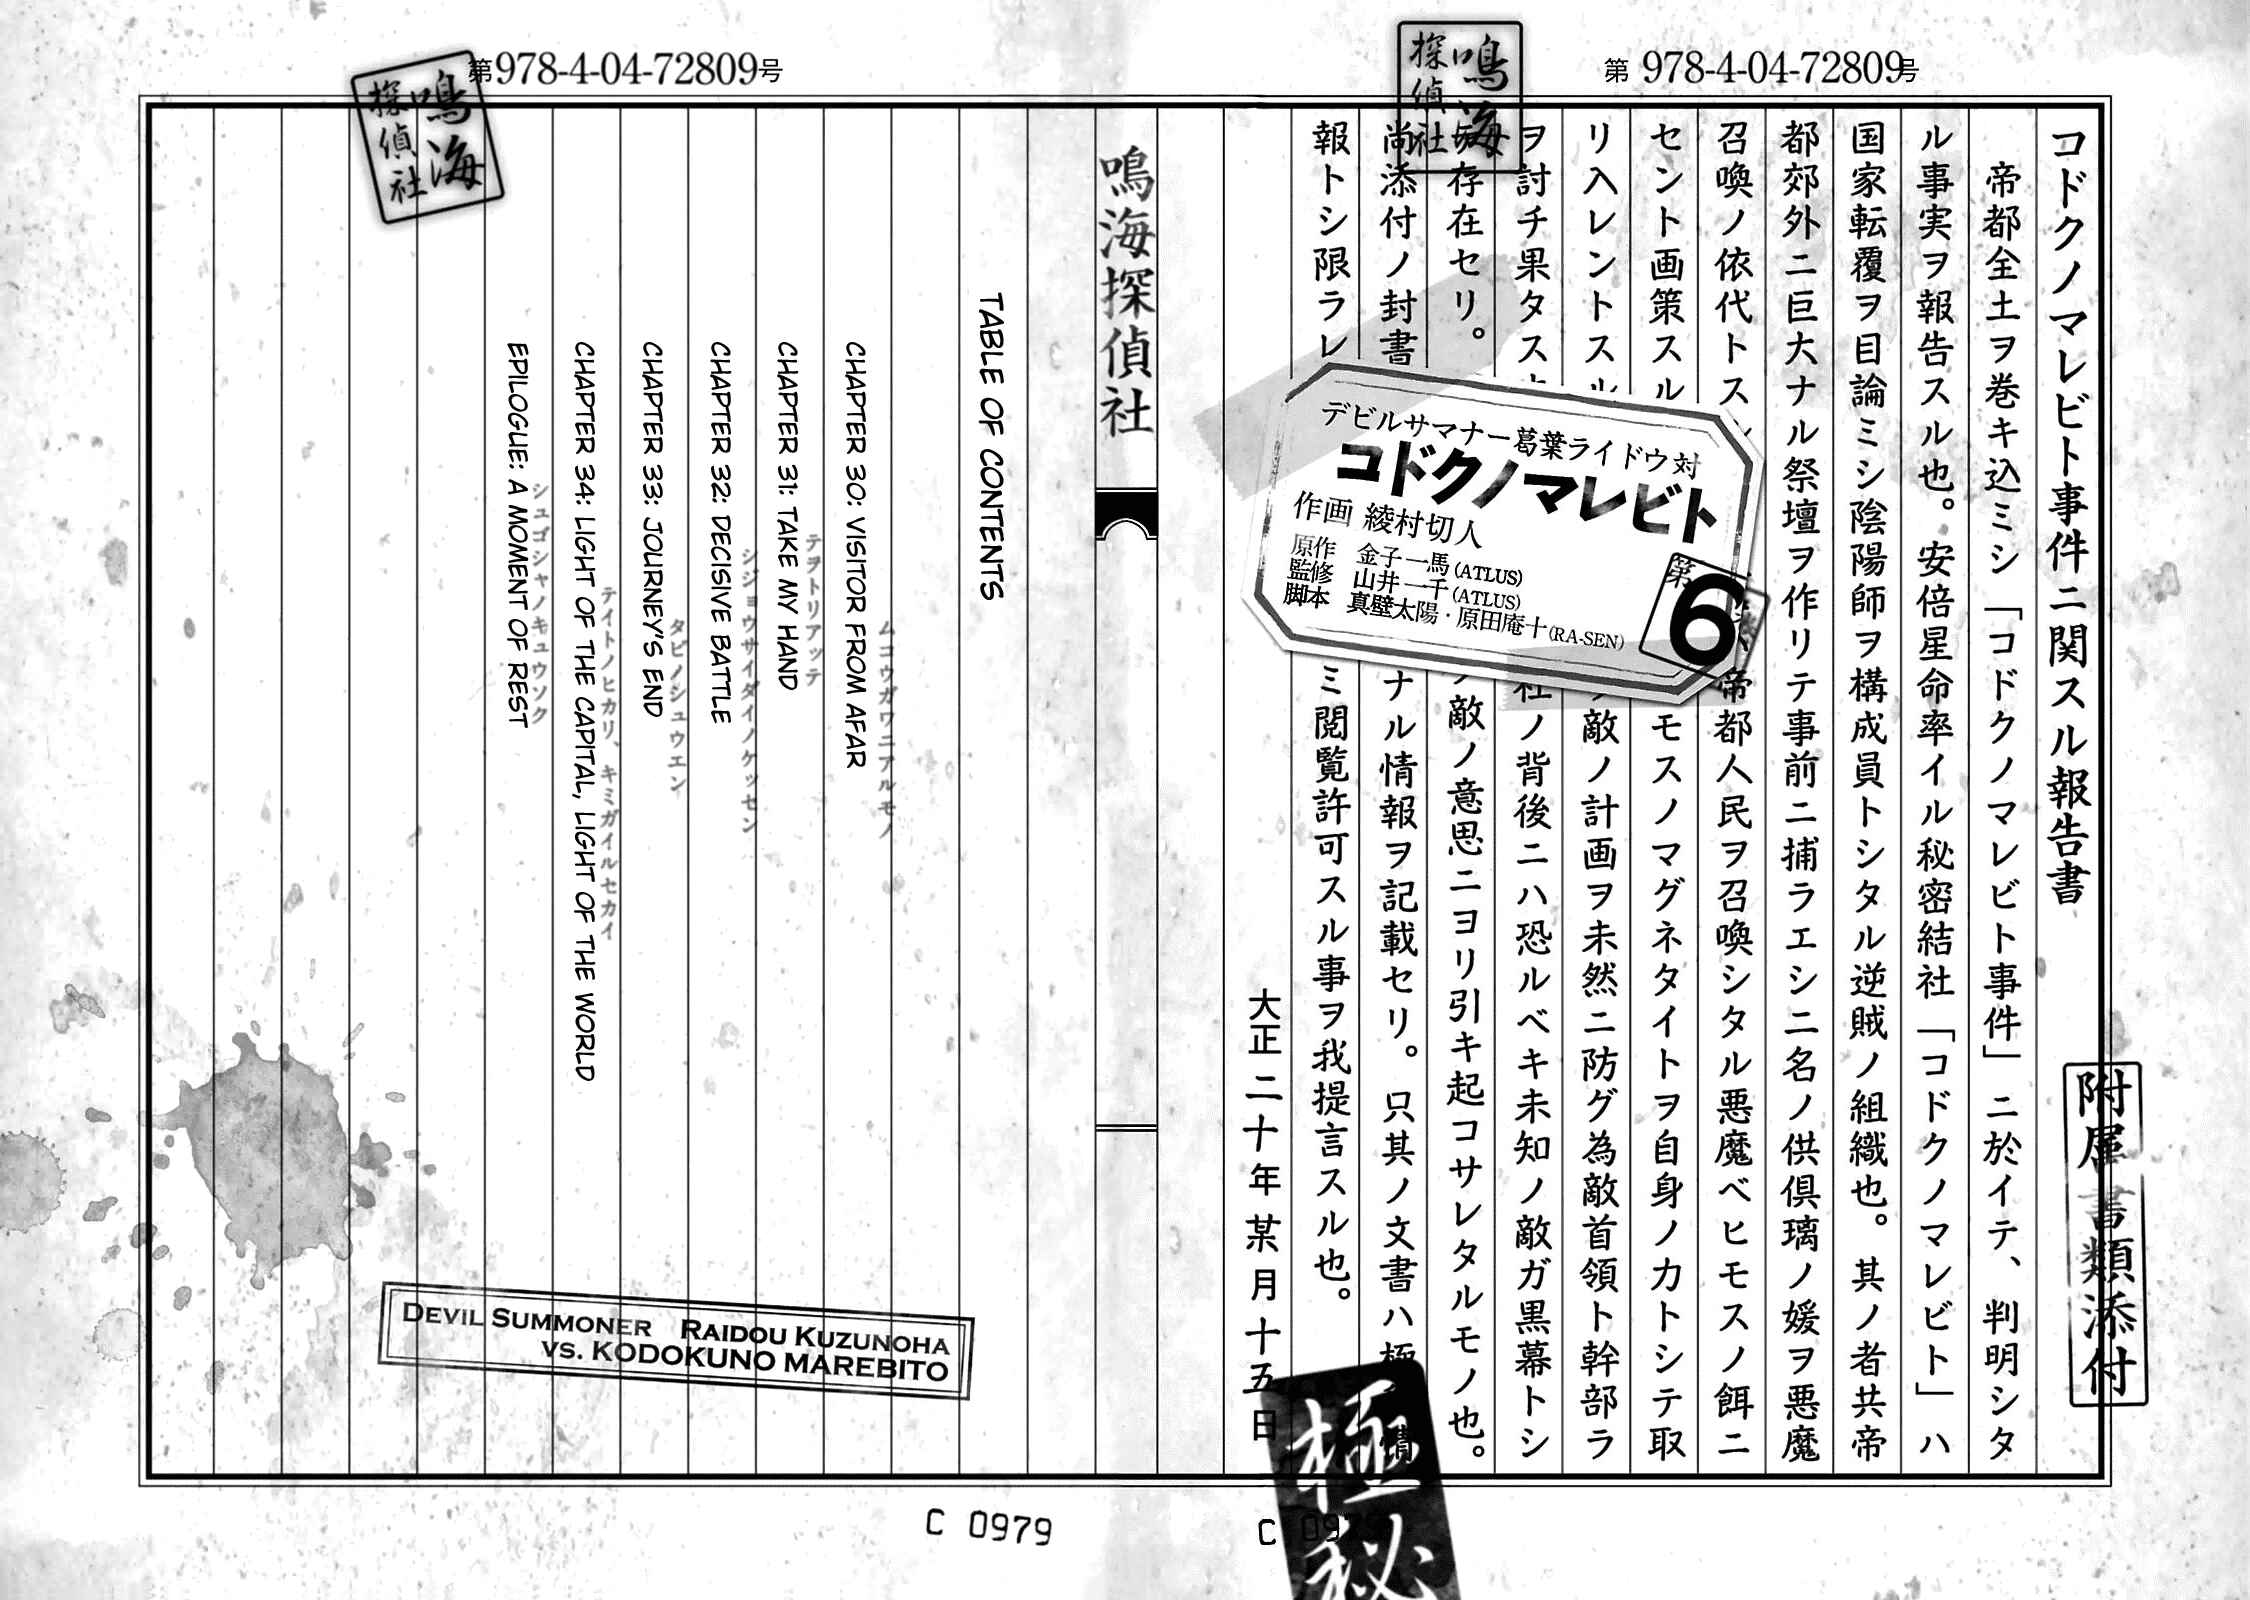 第978-4-04-72809号
鳴海
探偵社
コドクノマレビト事件ニ関スル報告書
附属書類添付
帝都全土ヲ巻キ込ミシ「コドクノマレビト事件」ニ於イテ、判明シタ
ル事実ヲ報告スル也。安倍星命率イル秘密結社「コドクノマレビト」ハ
国家転覆ヲ目論ミシ陰陽師ヲ構成員トシタル逆賊ノ組織也。其ノ者共帝
都郊外ニ巨大ナル祭壇ヲ作リテ事前ニ捕ラエシ二名ノ供倶璃ノ媛ヲ悪魔
召喚ノ依代トス
帝都人民ヲ召喚シタル悪魔ベヒモスノ餌ニ
セント画策スル
モスノマグネタイトヲ自身ノカトシテ取
リ入レントスル
敵ノ計画ヲ未然ニ防グ為敵首領ト幹部ラ
ヲ討チ果タス
社ノ背後ニハ恐ルベキ未知ノ敵ガ黒幕トシ
存在セリ。
敵ノ意思ニヨリ引キ起コサレタルモノ也。
尚添付ノ封書
ナル情報ヲ記載セリ。只其ノ文書ハ極
報トシ限ラレ
ミ閲覧許可スル事ヲ我提言スル也。
大正二十年某月十五日
極秘
デビルサマナー葛葉ライドウ対
コドクノマレビト
作画 綾村切人
原作 金子一馬(ATLUS)
監修 山井一千(ATLUS)
脚本 真壁太陽・原田庵十(RA-SEN)
第6
C 0979
鳴海探偵社
第978-4-04-72809号
鳴海
探偵社
TABLE OF CONTENTS
ムコウガワニアルモノ
CHAPTER 30: VISITOR FROM AFAR
テヲトリアッテ
CHAPTER 31: TAKE MY HAND
シジョウサイダイノケッセン
CHAPTER 32: DECISIVE BATTLE
タビノシュウエン
CHAPTER 33: JOURNEY'S END
テイトノヒカリ、キミガイルセカイ
CHAPTER 34: LIGHT OF THE CAPITAL, LIGHT OF THE WORLD
シュゴシャノキュウソク
EPILOGUE: A MOMENT OF REST
DEVIL SUMMONER RAIDOU KUZUNOHA
VS. KODOKUNO MAREBITO
C 0979